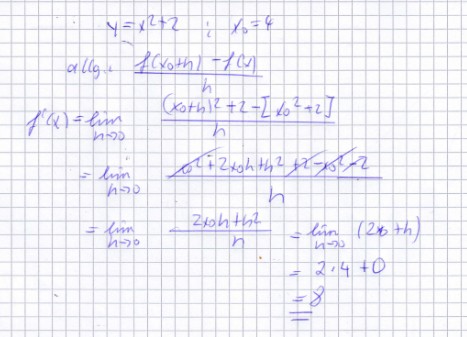 y = x²+2 ; x₀ = 4
allg.: f(x₀+h) - f(x) / h
f'(x) = lim h→0 (x₀+h)² + 2 - [x₀² + 2] / h
= lim h→0 x₀² + 2x₀h + h² + 2 - x₀² - 2 / h
= lim h→0 2x₀h + h² / h = lim h→0 (2x₀ + h)
= 2·4 + 0
= 8